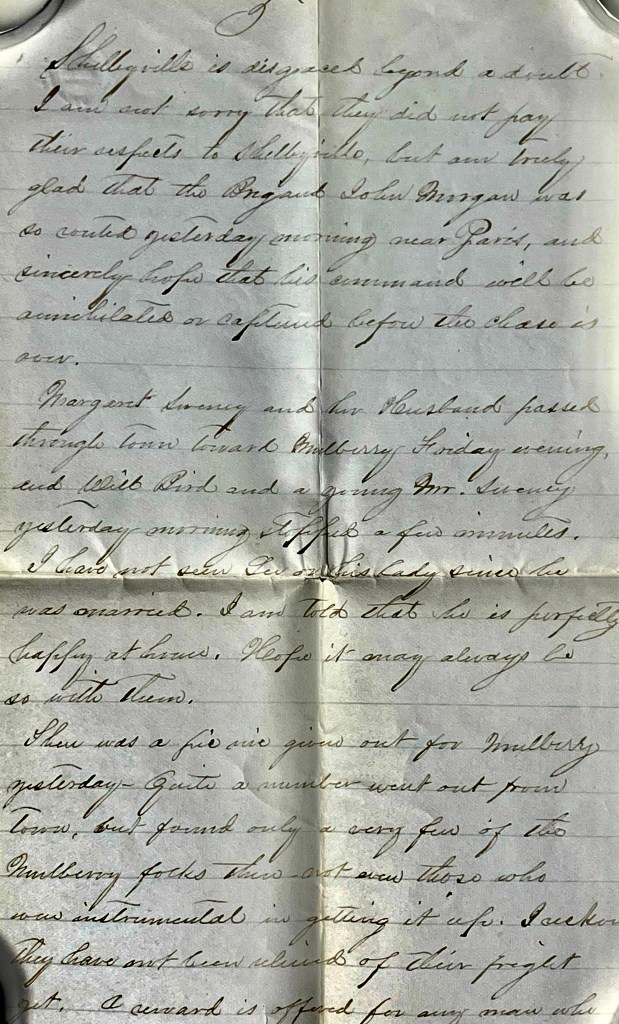 3
Shelbyville is disgraced beyond a doubt.
I am not sorry that they did not pay
their respects to Shelbyville, but am truly
glad that the Brigand John Morgan was
so routed yesterday morning near Paris, and
sincerely hope that his command will be
annihilated or captured before the chase is
over.
Margaret Sweney and her Husband passed
through town toward Mulberry Friday evening,
and Will Bird and a young Mr. Sweney
yesterday morning stopped a few minutes.
I have not seen Lee or his lady since he
was married. I am told that he is perfectly
happy at home. Hope it may always be
so with them.
There was a pic nic given out for Mulberry
yesterday– Quite a number went out from
town, but found only a very few of the
Mulberry folks there not even those who
were instrumental in getting it up. I reckon
they have not been relieved of their fright
yet. A reward is offered for any man who